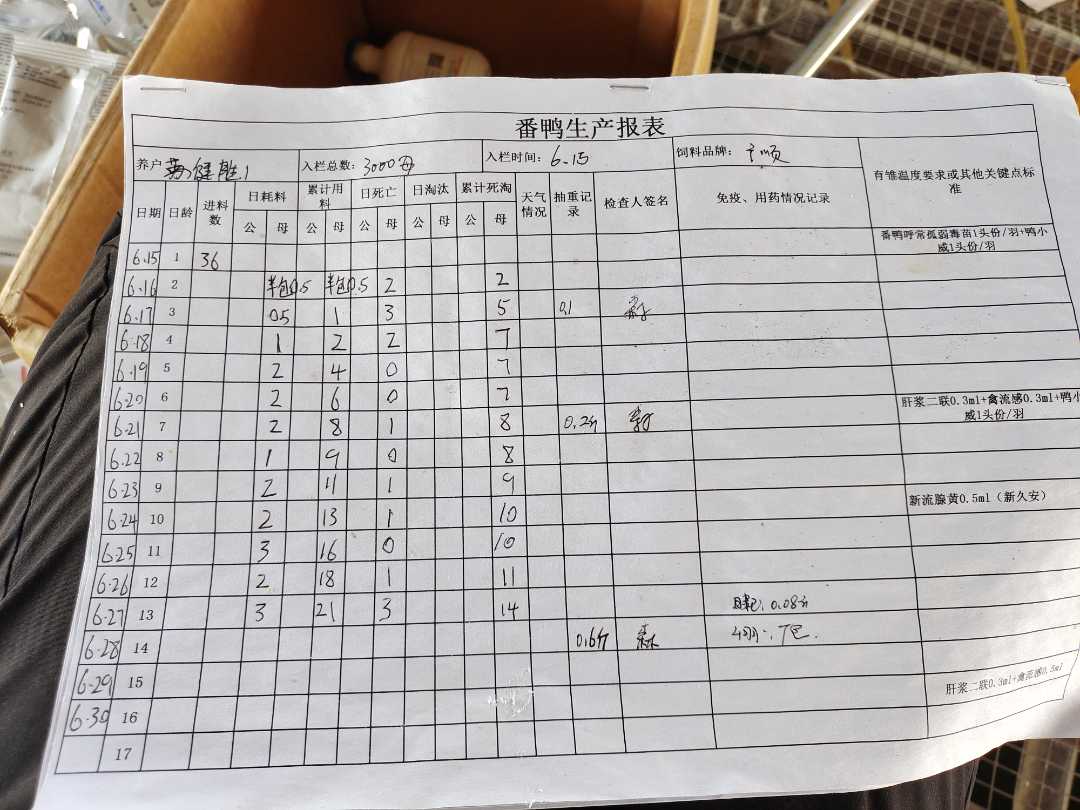 番鸭生产报表
养户 苏健胜1 入栏总数：3000母 入栏时间：6.15 饲料品牌：广顺 有雏温度要求或其他关键点标准
日期 日龄 进料数 日耗料 累计用料 日死亡 日淘汰 累计死淘 天气情况 抽重记录 检查人签名 免疫、用药情况记录
公 母 公 母 公 母 公 母 公 母
6.15 1 36 番鸭呼常孤弱毒苗1头份/羽+鸭小威1头份/羽
6.16 2 半包0.5 半包0.5 2 2
6.17 3 0.5 1 3 5 0.1
6.18 4 1 2 2 7
6.19 5 2 4 0 7
6.20 6 2 6 0 7
6.21 7 2 8 1 8 0.2斤 肝浆二联0.3ml+禽流感0.3ml+鸭小威1头份/羽
6.22 8 1 9 0 8
6.23 9 2 11 1 9
6.24 10 2 13 1 10 新流腺黄0.5ml（新久安）
6.25 11 3 16 0 10
6.26 12 2 18 1 11
6.27 13 3 21 3 14 0.08斤
6.28 14 0.6斤 7包.
6.29 15 肝浆二联0.3ml+禽流感0.5ml
6.30 16
17